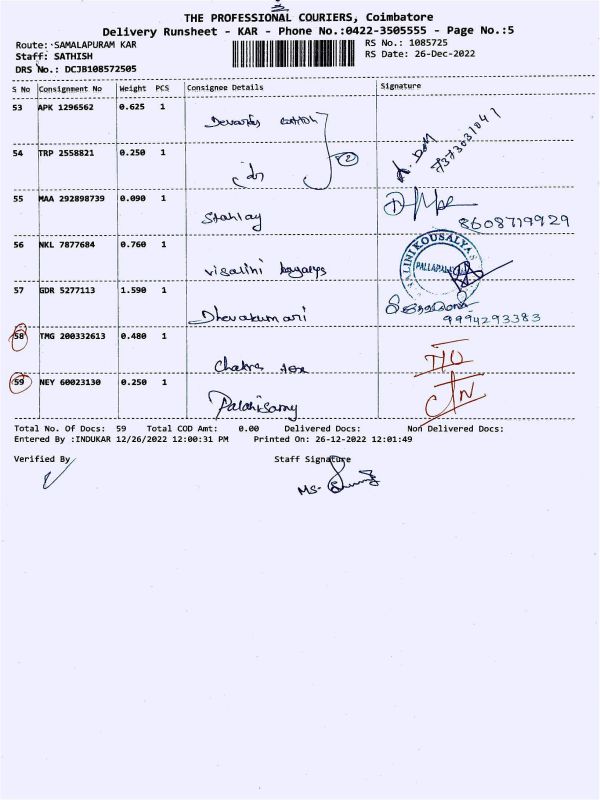 3
THE PROFESSIONAL COURIERS, Coimbatore
Delivery Runsheet - KAR - Phone No.:0422-3505555 - Page No.:5
Route: SAMALAPURAM KAR
RS No.: 1085725
Staff: SATHISH
RS Date: 26-Dec-2022
DRS No.: DCJB108572505
S No Consignment No Weight PCS Consignee Details Signature
53 APK 1296562 0.625 1
cotton
7373031041
54 TRP 2558821 0.250 1
2
55 MAA 292898739 0.090 1
Stanlay
8608719929
56 NKL 7877684 0.760 1
Visalini
PALLAPALAYAM
57 GDR 5277113 1.590 1
Dhevakumari
9994293383
58 TMG 200332613 0.480 1
Chakra tex
59 NEY 60023130 0.250 1
Palanisamy
Total No. Of Docs: 59 Total COD Amt: 0.00 Delivered Docs: Non Delivered Docs:
Entered By :INDUKAR 12/26/2022 12:00:31 PM Printed On: 26-12-2022 12:01:49
Verified By
Staff Signature
MS-